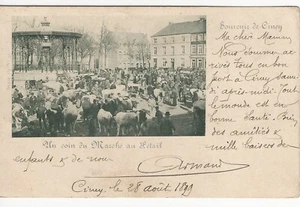 Souvenir de Ciney
Ma cher Maman,
Nous sommes
tous en bon
port à Ciney sam
après-midi. Tout
le monde est en
bonne santé.
des amitiés &
mille baisers de
enfants & de nous
Armand
Un coin du Marché au Bétail
Ciney, le 28 août 1899